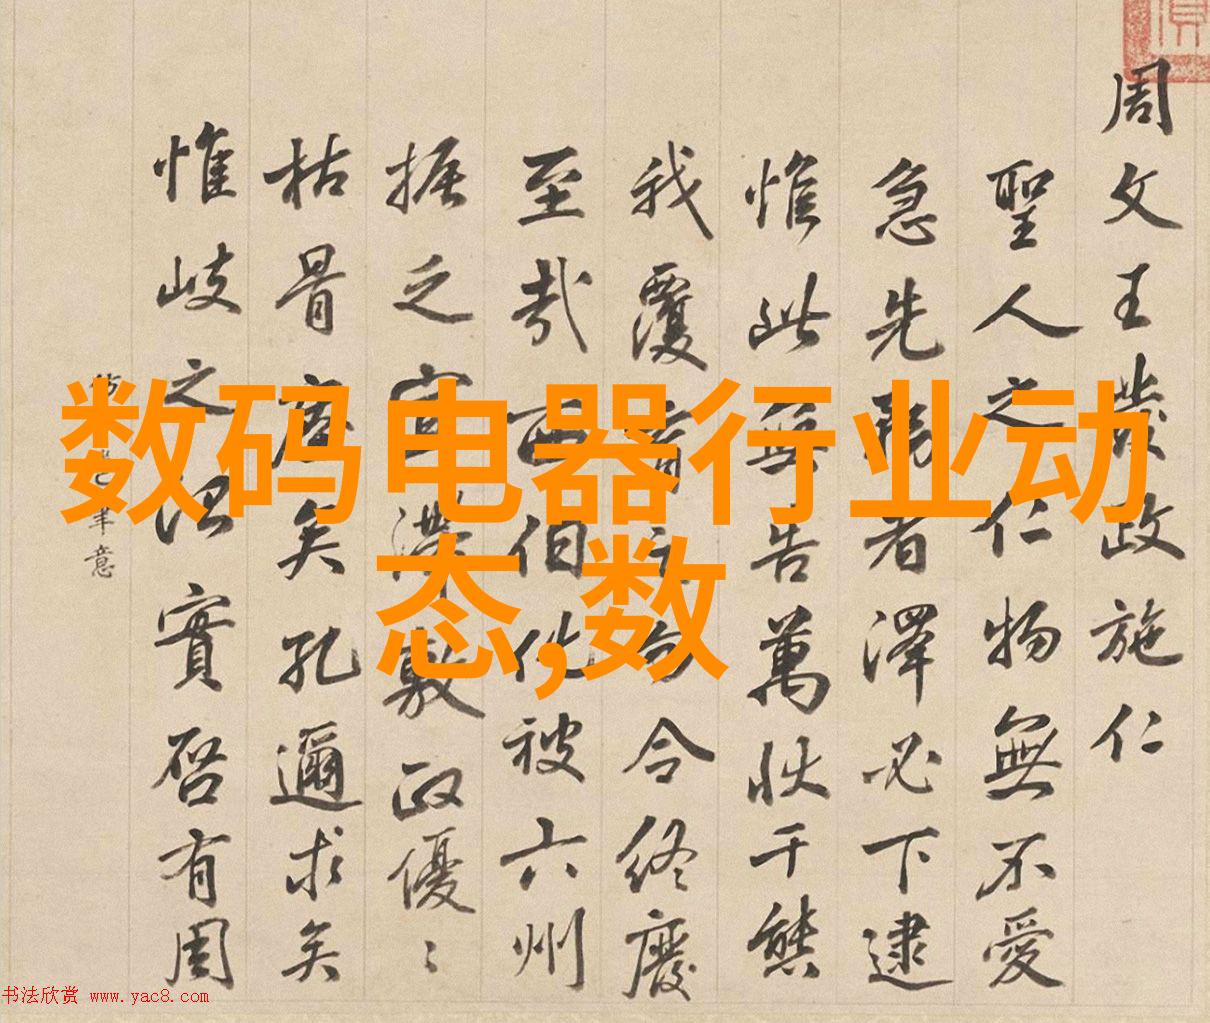 周文王發政施仁
聖人之仁物無不愛
急先者澤必下逮
惟此無告萬狀千態
我覆育之令終慶
至哉西伯化被六州
振之澤敷政優〻
枯骨瘞矣孔邇求矣
惟岐之治實啓有周
筆意
数码电器行业动
态,数
书法欣赏 www.yac8.com